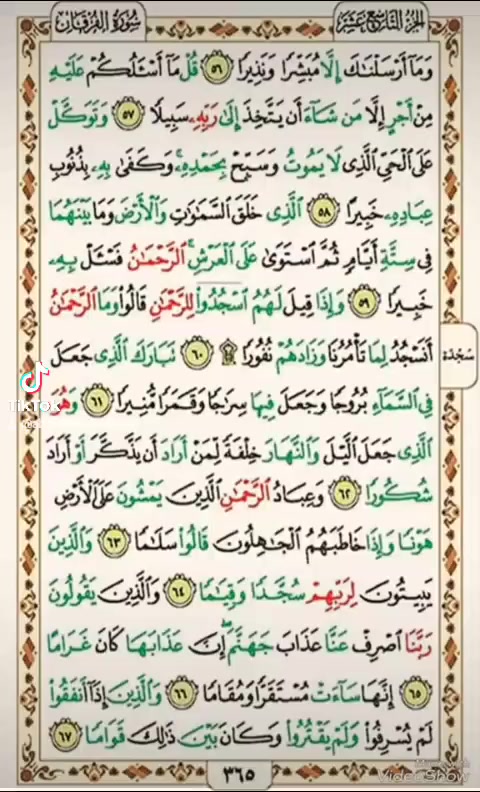 سُورَةُ الفُرْقَان
الجُزْءُ التَّاسِعَ عَشَرَ
وَمَآ أَرْسَلْنَٰكَ إِلَّا مُبَشِّرًا وَنَذِيرًا ٥٦ قُلْ مَآ أَسْـَٔلُكُمْ عَلَيْهِ
مِنْ أَجْرٍ إِلَّا مَن شَآءَ أَن يَتَّخِذَ إِلَىٰ رَبِّهِۦ سَبِيلًا ٥٧ وَتَوَكَّلْ
عَلَى ٱلْحَىِّ ٱلَّذِى لَا يَمُوتُ وَسَبِّحْ بِحَمْدِهِۦ ۚ وَكَفَىٰ بِهِۦ بِذُنُوبِ
عِبَادِهِۦ خَبِيرًا ٥٨ ٱلَّذِى خَلَقَ ٱلسَّمَٰوَٰتِ وَٱلْأَرْضَ وَمَا بَيْنَهُمَا
فِى سِتَّةِ أَيَّامٍ ثُمَّ ٱسْتَوَىٰ عَلَى ٱلْعَرْشِ ۚ ٱلرَّحْمَٰنُ فَسْـَٔلْ بِهِۦ
خَبِيرًا ٥٩ وَإِذَا قِيلَ لَهُمُ ٱسْجُدُوا۟ لِلرَّحْمَٰنِ قَالُوا۟ وَمَا ٱلرَّحْمَٰنُ
أَنَسْجُدُ لِمَا تَأْمُرُنَا وَزَادَهُمْ نُفُورًا ۩ ٦٠ تَبَارَكَ ٱلَّذِى جَعَلَ
سَجْدَة
فِى ٱلسَّمَآءِ بُرُوجًا وَجَعَلَ فِيهَا سِرَٰجًا وَقَمَرًا مُّنِيرًا ٦١ وَهُوَ
ٱلَّذِى جَعَلَ ٱلَّيْلَ وَٱلنَّهَارَ خِلْفَةً لِّمَنْ أَرَادَ أَن يَذَّكَّرَ أَوْ أَرَادَ
شُكُورًا ٦٢ وَعِبَادُ ٱلرَّحْمَٰنِ ٱلَّذِينَ يَمْشُونَ عَلَى ٱلْأَرْضِ
هَوْنًا وَإِذَا خَاطَبَهُمُ ٱلْجَٰهِلُونَ قَالُوا۟ سَلَٰمًا ٦٣ وَٱلَّذِينَ
يَبِيتُونَ لِرَبِّهِمْ سُجَّدًا وَقِيَٰمًا ٦٤ وَٱلَّذِينَ يَقُولُونَ
رَبَّنَا ٱصْرِفْ عَنَّا عَذَابَ جَهَنَّمَ ۖ إِنَّ عَذَابَهَا كَانَ غَرَامًا
٦٥ إِنَّهَا سَآءَتْ مُسْتَقَرًّا وَمُقَامًا ٦٦ وَٱلَّذِينَ إِذَآ أَنفَقُوا۟
لَمْ يُسْرِفُوا۟ وَلَمْ يَقْتُرُوا۟ وَكَانَ بَيْنَ ذَٰلِكَ قَوَامًا ٦٧
٣٦٥
TikTok
VideoShow